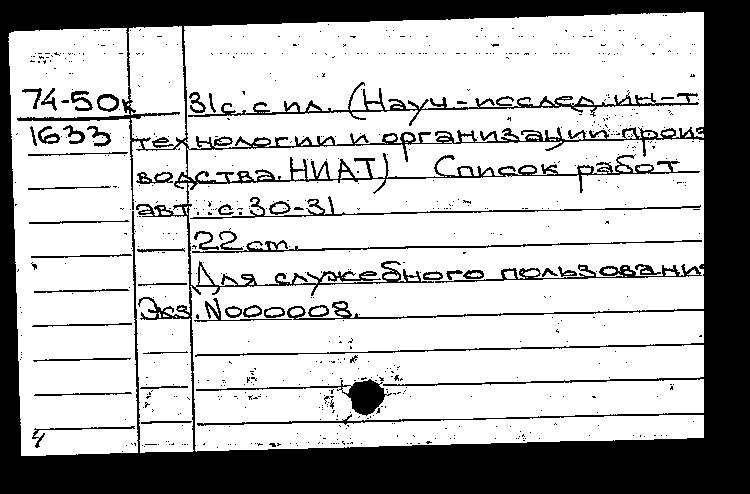 74-50к 31с. с ил. (Науч-исслед. ин-т
1633 технологии и организации произ
водства. НИАТ) Список работ
авт.: с. 30-31
22 cm.
Для служебного пользования
Экз. N000008.
4